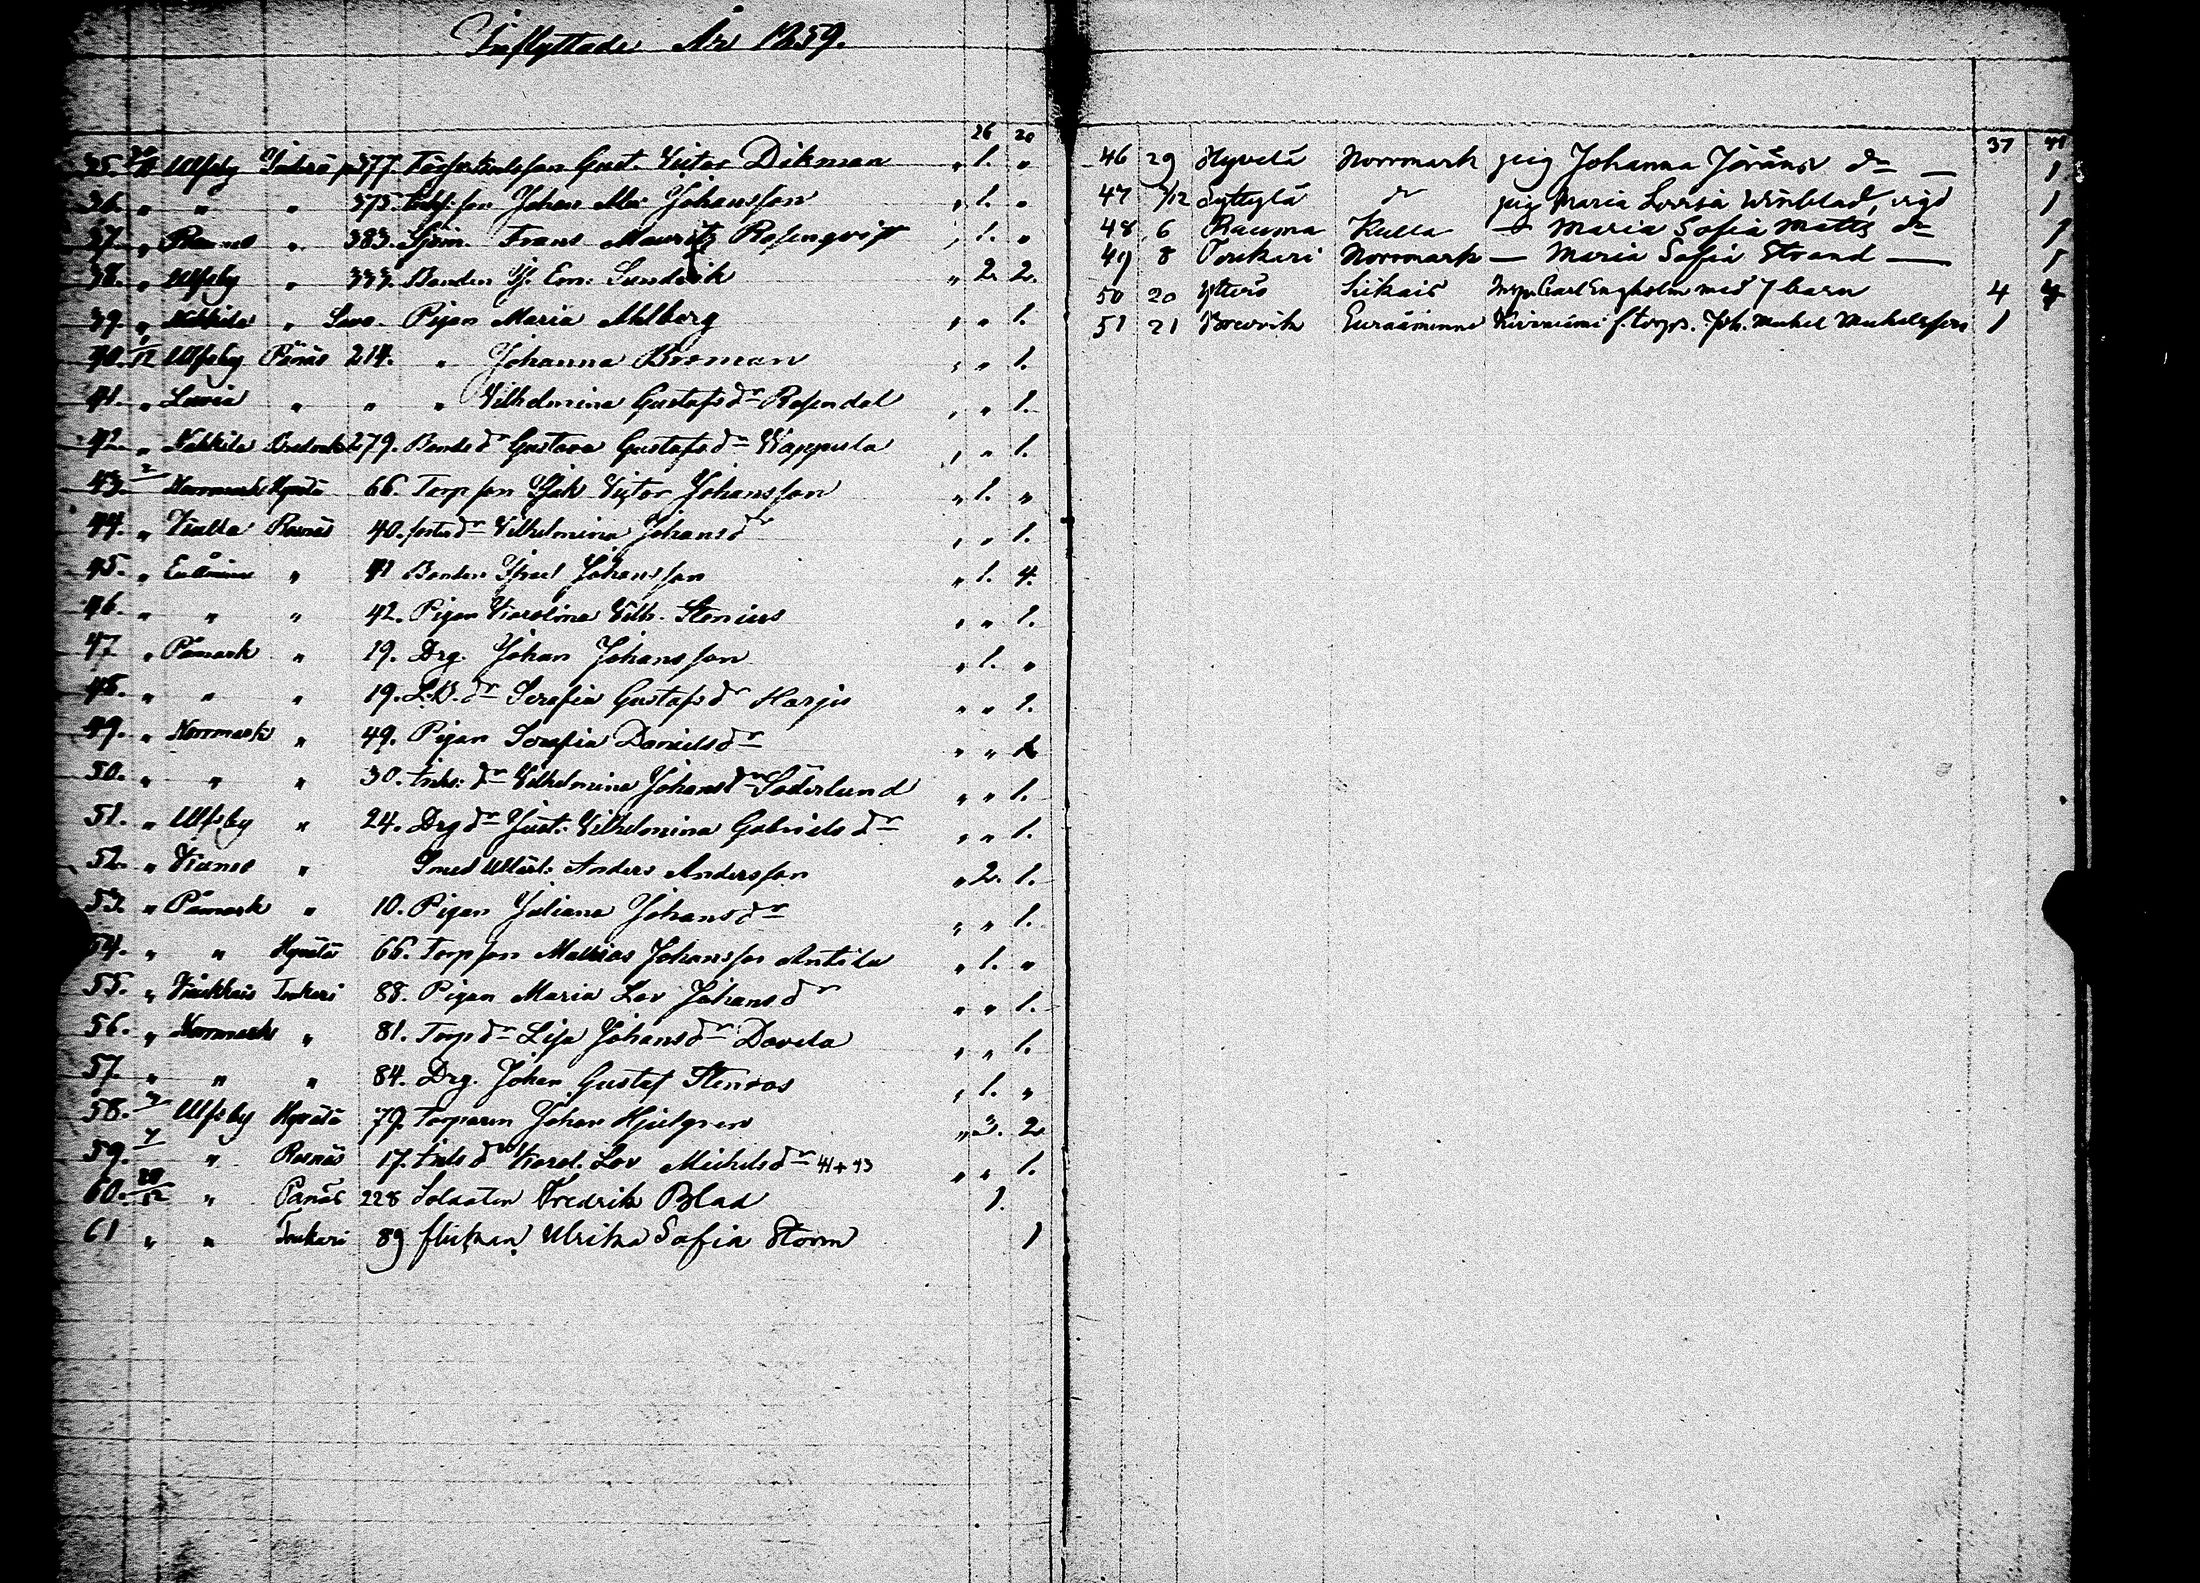 Inflyttade År 1859.
26 20
35. Ulfsby Inderö 377. Gust. Victor Dikman „ 1. „
36. „ „ „ 375. son Johan Alex Johansson „ 1. „
37. „ „ 383. Sjöm. Frans Mauritz Rosenqvist „ 1. „
38. „ Ulfsby „ 333. Bonden Is. Em. Sundvik „ 2. 2.
39. „ Nakkila „ Savo. Pigan Maria Ahlberg „ „ 1.
40. Ulfsby Pänäs 214. „ Johanna Broman „ „ 1.
41. „ Lavia „ „ „ Vilhelmina Gustafsdr Rosendal „ „ 1.
42. „ Nakkila Bredvik 279. Bondedr Gustava Gustafsdr Kappula „ „ 1.
43. 2 Norrmark Hyvelä 66. Torpson Isak Victor Johansson „ 1. „
44. „ Kulla Rosnäs 40. Vilhelmina Johansdr „ „ 1.
45. „ „ 41 Bonden Israel Johansson „ 1. 4.
46. „ „ „ 42. Pigan Karolina Vilh. Stenius „ „ 1.
47 „ Påmark „ 19. Drg. Johan Johansson „ 1. „
48. „ „ „ 19. dr Serafia Gustafsdr Harju „ „ 1.
49. „ Norrmark „ 49. Pigan Serafia Danielsdr „ „ 1.
50. „ „ „ 30. Inhs: dr Vilhelmina Johansdr Söderlund „ „ 1.
51. „ Ulfsby „ 24. Drgdr Just. Vilhelmina Gabrielsdr „ „ 1.
52. „ „ Smed Anders Andersson „ 2. 1.
53. „ Påmark „ 10. Pigan Juliana Johansdr „ „ 1.
54. „ „ Hyvelä 66. Torpson Mathias Johansson Antila „ 1. „
55. „ Toukari 88. Pigan Maria Lov Johansdr „ „ 1.
56. „ Norrmark „ 81. Torpdr Lisa Johansdr Davela „ „ 1.
57. „ „ „ 84. Drg. Johan Gustaf Stenroos „ 1. „
58. Ulfsby Hyvelä 79. Torparen Johan Hjelgren „ 3. 2
59. 7 „ Rosnäs 17. Inhsdr Karol. Lov Michelsdr 41+43 „ „ 1.
60. 20/12 „ Pänäs 228 Soldaten Fredrik Blad 1.
61 „ „ Toukari 89 flickan Ulrika Sofia Storm 1
37 41
46 29 Hyvelä Norrmark pig Johanna Jöransdr — 1
47 1/12 Lyttylä pig Maria Lovisa Winblad, vigd 1
48 6 Rauma Kulla — Maria Sofia Matts dr 1
49 8 Toukari Norrmark — Maria Sofia Strand — 1
50 20 Ytterö Siikais Insp. Carl Engholm med 7 barn 4 4
51 21 Bredvik Euraåminne Kiviniemi f. torp. Joh. Mikel Mikelsson 1